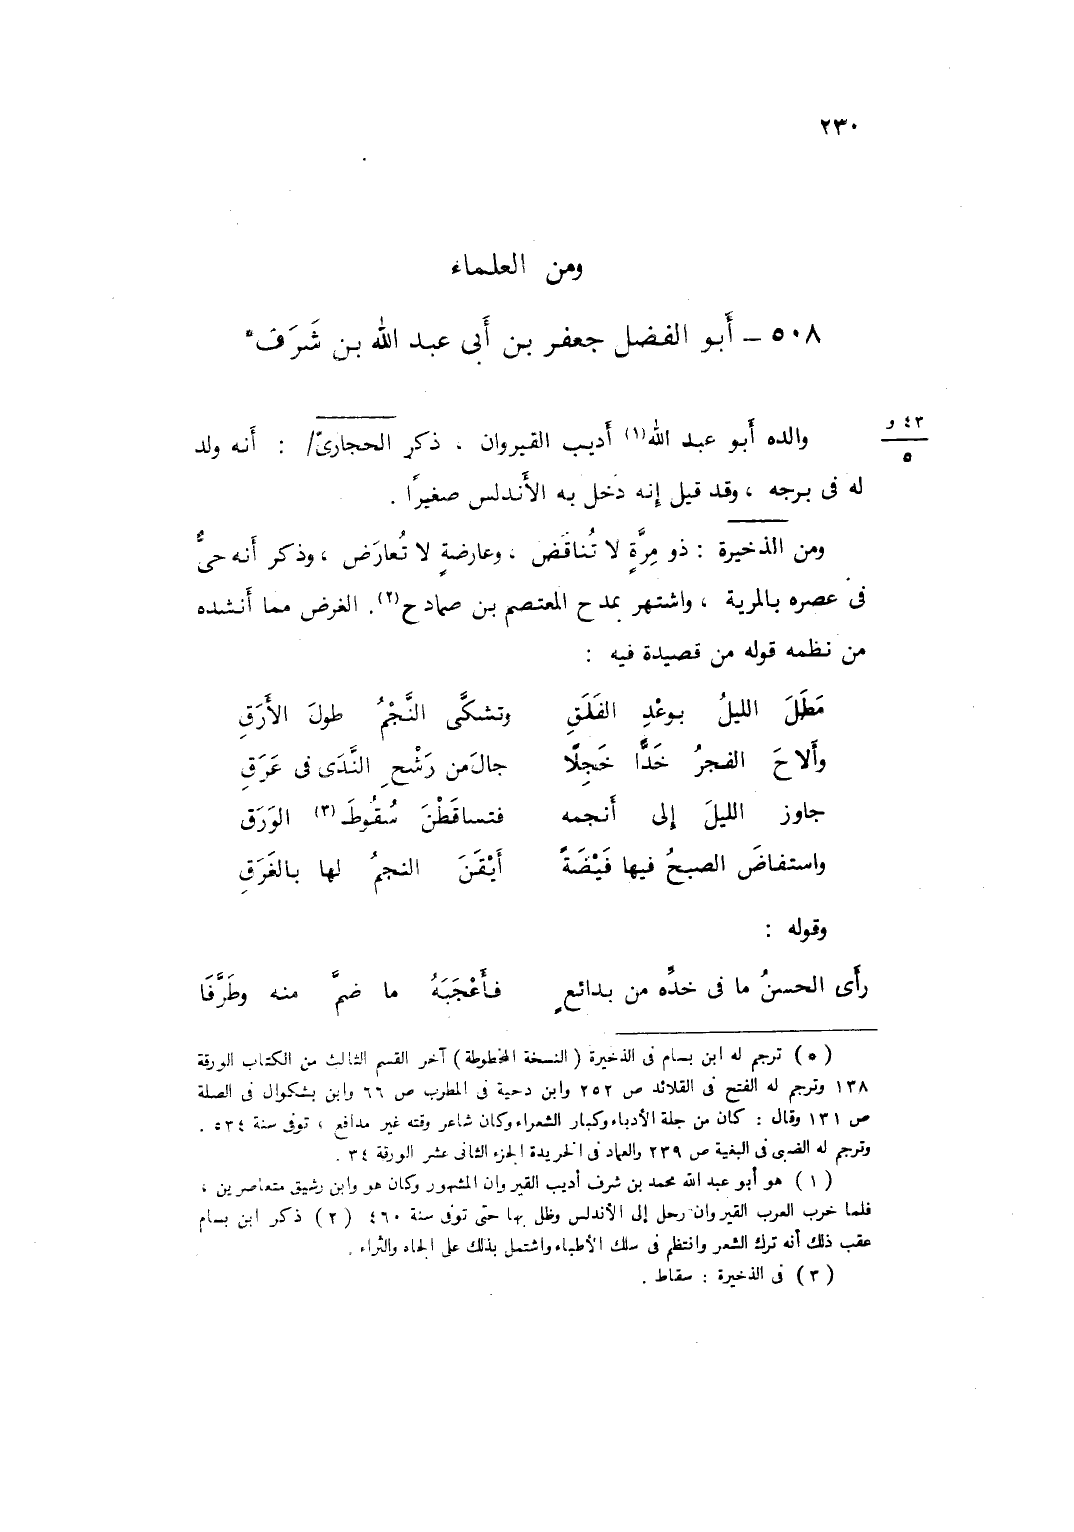 ٢٣٠
ومن العلماء
٥٠٨ – أَبو الفضل جعفر بن أَبى عبد الله بن شَرَف*
والده أَبو عبد الله(١) أَديب القيروان ، ذكر الحجارىّ/ : أَنه ولد
٤٣ و
٥
له فى برجه ، وقد قيل إِنه دخل به الأَندلس صغيرًا .
ومن الذخيرة : ذو مِرَّةٍ لا تُناقَض ، وعارضةٍ لا تُعارَض ، وذكر أَنه حىٌّ
فى عصره بالمرية ، واشتهر بمدح المعتصم بن صمادح(٢). الغرض مما أَنشده
من نظمه قوله من قصيدة فيه :
مَطَلَ الليلُ بوعْدِ الفَلَقِ وتشكَّى النَّجْمُ طولَ الأَرَقِ
وأَلاحَ الفجرُ خَدًّا خَجِلًا جالَ من رَشْحِ النَّدَى فى عَرَقِ
جاوز الليلَ إِلى أَنجمه فتساقَطْنَ سُقُوطَ(٣) الوَرَقِ
واستفاضَ الصبحُ فيها فَيْضَةً أَيْقَنَ النجمُ لها بالغَرَقِ
وقوله :
رأَى الحسنُ ما فى خدِّه من بدائعٍ فأَعْجَبَهُ ما ضمَّ منه وطَرَّفَا
(*) ترجم له ابن بسام فى الذخيرة (النسخة المخطوطة) آخر القسم الثالث من الكتاب الورقة
١٣٨ وترجم له الفتح فى القلائد ص ٢٥٢ وابن دحية فى المطرب ص ٦٦ وابن بشكوال فى الصلة
ص ١٣١ وقال : كان من جلة الأدباء وكبار الشعراء وكان شاعر وقته غير مدافع ، توفى سنة ٥٣٤ .
وترجم له الضبى فى البغية ص ٢٣٩ والعماد فى الخريدة الجزء الثانى عشر الورقة ٣٤ .
(١) هو أبو عبد الله محمد بن شرف أديب القيروان المشهور وكان هو وابن رشيق متعاصرين ،
فلما خرب العرب القيروان رحل إلى الأندلس وظل بها حتى توفى سنة ٤٦٠ (٢) ذكر ابن بسام
عقب ذلك أنه ترك الشعر وانتظم فى سلك الأطباء واشتمل بذلك على الجاه والثراء .
(٣) فى الذخيرة : سقاط .